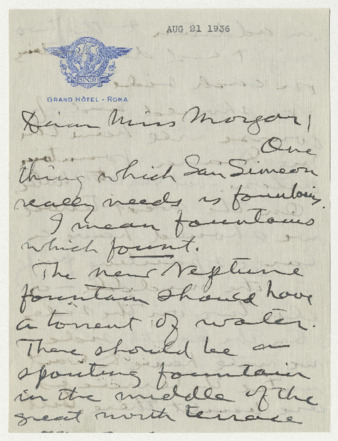 AUG 21 1936
GRAND HÔTEL - ROMA
Dear Miss Morgan,
One
thing which San Simeon
really needs is fountains.
I mean fountains
which fount.
The new Neptune
fountain should have
a torrent of water.
There should be a
spouting fountain
in the middle of the
great north terrace